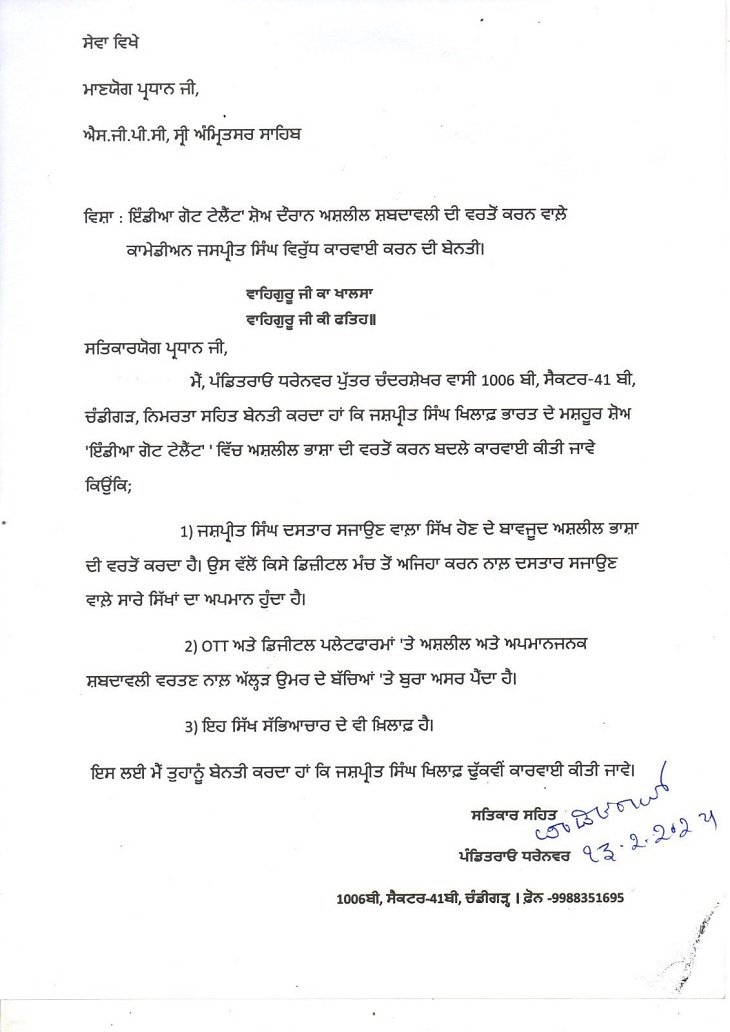 ਸੇਵਾ ਵਿਖੇ
ਮਾਣਯੋਗ ਪ੍ਰਧਾਨ ਜੀ,
ਐਸ.ਜੀ.ਪੀ.ਸੀ, ਸ੍ਰੀ ਅੰਮ੍ਰਿਤਸਰ ਸਾਹਿਬ
ਵਿਸ਼ਾ : ਇੰਡੀਆ ਗੋਟ ਟੇਲੈਂਟ' ਸ਼ੋਅ ਦੌਰਾਨ ਅਸ਼ਲੀਲ ਸ਼ਬਦਾਵਲੀ ਦੀ ਵਰਤੋਂ ਕਰਨ ਵਾਲੇ਼
ਕਾਮੇਡੀਅਨ ਜਸਪ੍ਰੀਤ ਸਿੰਘ ਵਿਰੁੱਧ ਕਾਰਵਾਈ ਕਰਨ ਦੀ ਬੇਨਤੀ।
ਵਾਹਿਗੁਰੂ ਜੀ ਕਾ ਖਾਲਸਾ
ਵਾਹਿਗੁਰੂ ਜੀ ਕੀ ਫਤਿਹ॥
ਸਤਿਕਾਰਯੋਗ ਪ੍ਰਧਾਨ ਜੀ,
ਮੈਂ, ਪੰਡਿਤਰਾਓ ਧਰੇਨਵਰ ਪੁੱਤਰ ਚੰਦਰਸ਼ੇਖਰ ਵਾਸੀ 1006 ਬੀ, ਸੈਕਟਰ-41 ਬੀ,
ਚੰਡੀਗੜ, ਨਿਮਰਤਾ ਸਹਿਤ ਬੇਨਤੀ ਕਰਦਾ ਹਾਂ ਕਿ ਜਸ਼ਪ੍ਰੀਤ ਸਿੰਘ ਖਿਲਾਫ਼ ਭਾਰਤ ਦੇ ਮਸ਼ਹੂਰ ਸ਼ੋਅ
'ਇੰਡੀਆ ਗੋਟ ਟੇਲੈਂਟ' ' ਵਿੱਚ ਅਸ਼ਲੀਲ ਭਾਸ਼ਾ ਦੀ ਵਰਤੋਂ ਕਰਨ ਬਦਲੇ ਕਾਰਵਾਈ ਕੀਤੀ ਜਾਵੇ
ਕਿਉਂਕਿ;
1) ਜਸ਼ਪ੍ਰੀਤ ਸਿੰਘ ਦਸਤਾਰ ਸਜਾਉਣ ਵਾਲ਼ਾ ਸਿੱਖ ਹੋਣ ਦੇ ਬਾਵਜੂਦ ਅਸ਼ਲੀਲ ਭਾਸ਼ਾ
ਦੀ ਵਰਤੋਂ ਕਰਦਾ ਹੈ। ਉਸ ਵੱਲੋਂ ਕਿਸੇ ਡਿਜ਼ੀਟਲ ਮੰਚ ਤੋਂ ਅਜਿਹਾ ਕਰਨ ਨਾਲ਼ ਦਸਤਾਰ ਸਜਾਉਣ
ਵਾਲੇ਼ ਸਾਰੇ ਸਿੱਖਾਂ ਦਾ ਅਪਮਾਨ ਹੁੰਦਾ ਹੈ।
2) OTT ਅਤੇ ਡਿਜੀਟਲ ਪਲੇਟਫਾਰਮਾਂ 'ਤੇ ਅਸ਼ਲੀਲ ਅਤੇ ਅਪਮਾਨਜਨਕ
ਸ਼ਬਦਾਵਲੀ ਵਰਤਣ ਨਾਲ਼ ਅੱਲ੍ਹੜ ਉਮਰ ਦੇ ਬੱਚਿਆਂ 'ਤੇ ਬੁਰਾ ਅਸਰ ਪੈਂਦਾ ਹੈ।
3) ਇਹ ਸਿੱਖ ਸੱਭਿਆਚਾਰ ਦੇ ਵੀ ਖ਼ਿਲਾਫ਼ ਹੈ।
ਇਸ ਲਈ ਮੈਂ ਤੁਹਾਨੂੰ ਬੇਨਤੀ ਕਰਦਾ ਹਾਂ ਕਿ ਜਸ਼ਪ੍ਰੀਤ ਸਿੰਘ ਖਿਲਾਫ਼ ਢੁੱਕਵੀਂ ਕਾਰਵਾਈ ਕੀਤੀ ਜਾਵੇ।
ਸਤਿਕਾਰ ਸਹਿਤ
ਪੰਡਿਤਰਾਓ ਧਰੇਨਵਰ ੧੩.੨.੨੦੨੫
1006ਬੀ, ਸੈਕਟਰ-41ਬੀ, ਚੰਡੀਗੜ੍ਹ । ਫ਼ੋਨ -9988351695